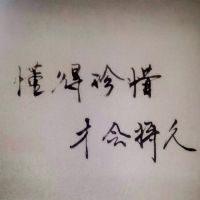 懂得珍惜
才会持久